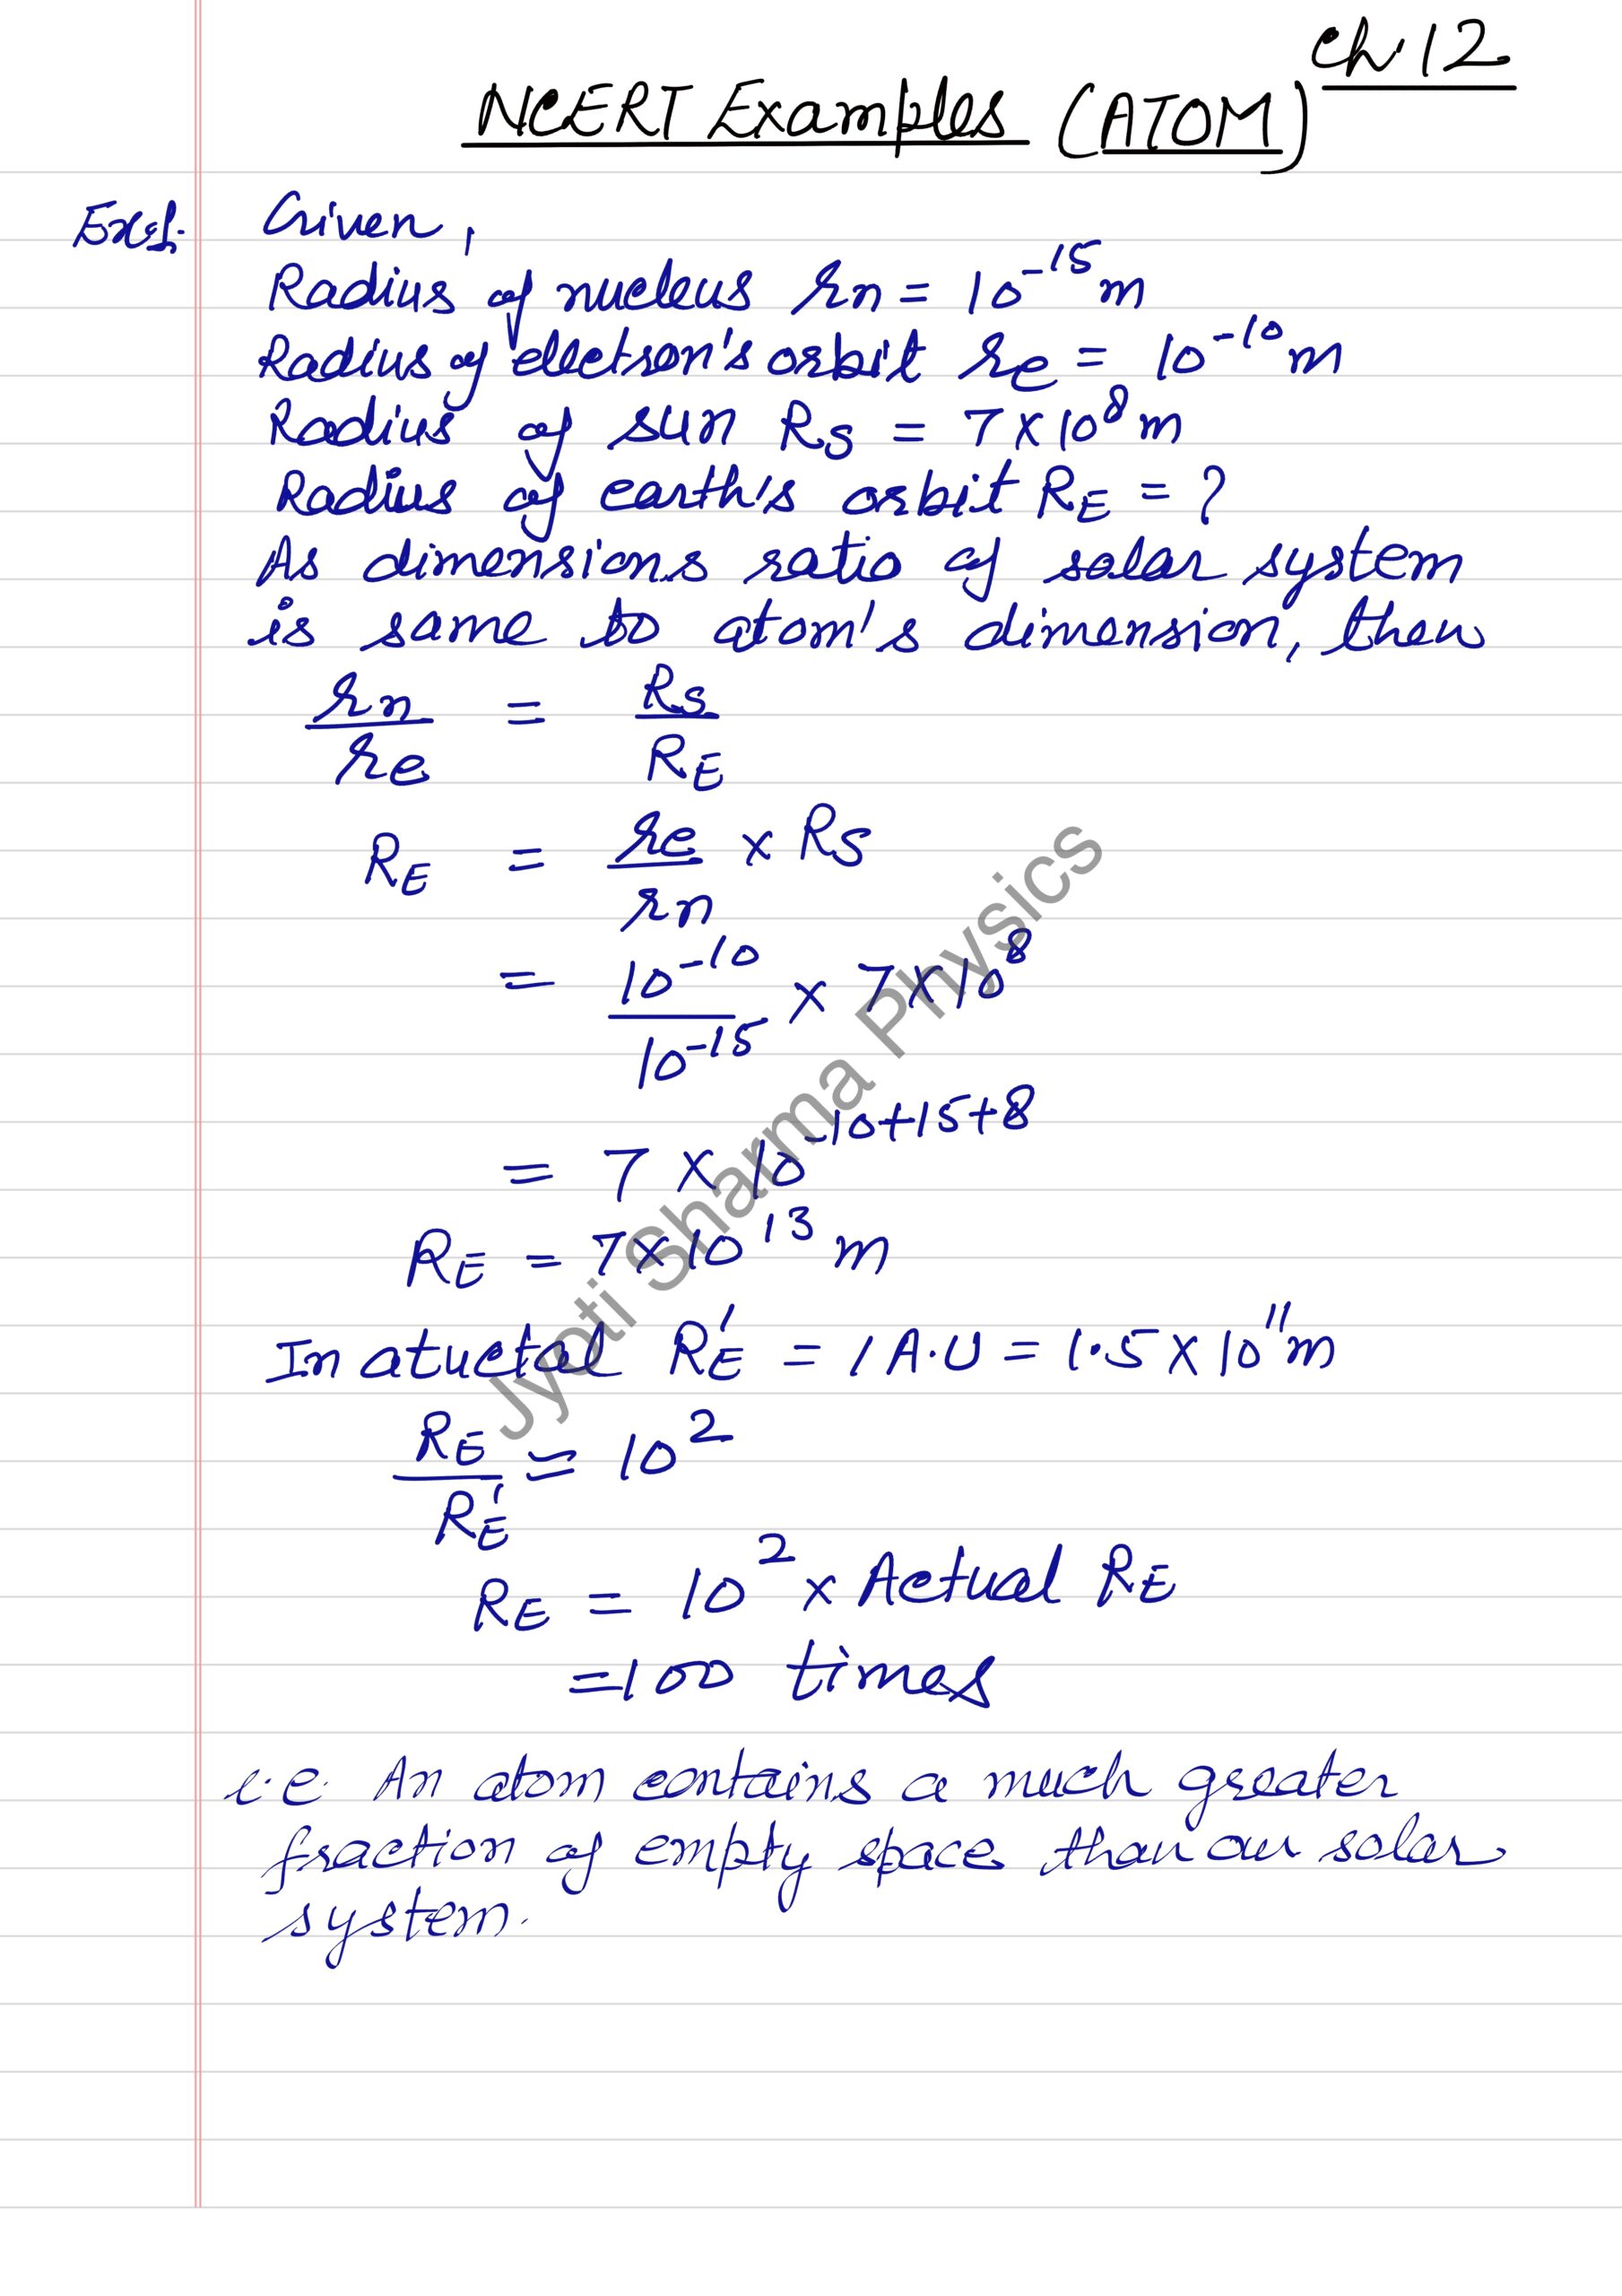 Ch 12
NCERT Examples (ATOM)
Ex1. Given,
Radius of nucleus rn = 10⁻¹⁵ m
Radius of electron's orbit re = 10⁻¹⁰ m
Radius of sun Rs = 7 × 10⁸ m
Radius of earth's orbit RE = ?
As dimensions ratio of solar system
is same to atom's dimension, then
rn/re = Rs/RE
RE = re/rn × Rs
= 10⁻¹⁰/10⁻¹⁵ × 7 × 10⁸
= 7 × 10⁻¹⁰⁺¹⁵⁺⁸
RE = 7 × 10¹³ m
In atuctal RE' = 1 A.U = 1.5 × 10¹¹ m
RE/RE' ≃ 10²
RE = 10² × Actual RE
= 100 times
i.e. An atom contains a much greater
fraction of empty space than our solar
system.
Jyoti Sharma Physics